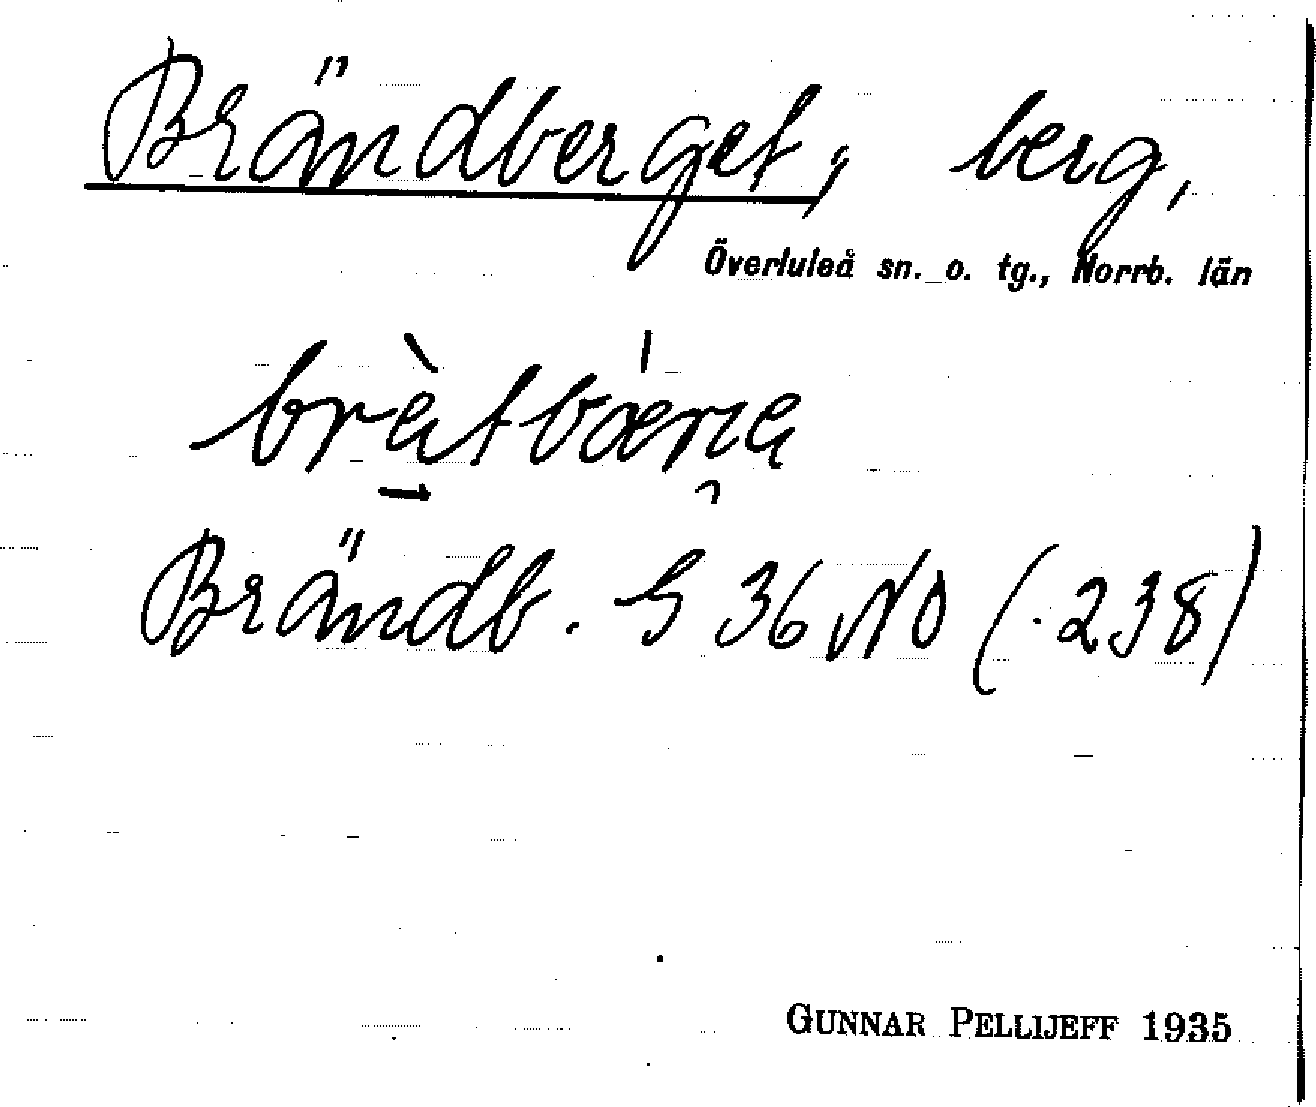 Brändberget, berg,
Överluleå sn. o. tg., Norrb. län
Brändb. S 36 NO (. 238)
GUNNAR PELLIJEFF 1935